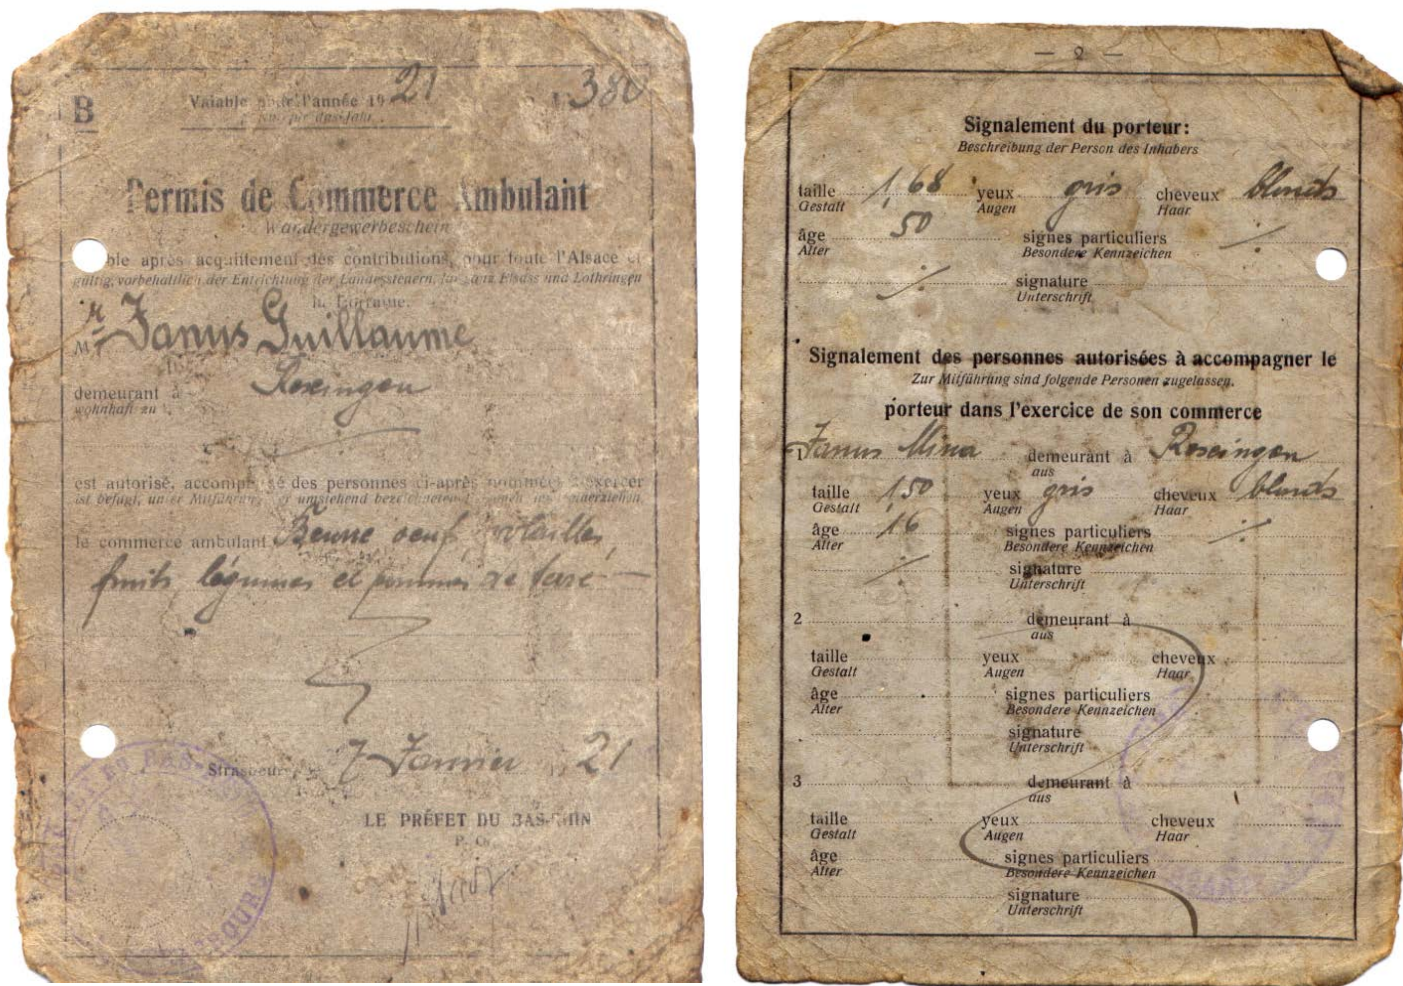 B
Valable pour l'année 1921
380
Permis de Commerce Ambulant
Wandergewerbeschein
ble après acquittement des contributions, pour toute l'Alsace et
gültig, vorbehaltlich der Entrichtung der Landessteuern, für ganz Elsass und Lothringen
la Lorraine.
Mr Janus Guillaume
demeurant à
wohnhaft zu
est autorisé, accompagné des personnes ci-après nommées à exercer
le commerce ambulant Beurre oeuf, volailles,
fruits légumes et pommes de tere
Strasbourg, 7 Janvier 1921
LE PRÉFET DU BAS-RHIN
— 2 —
Signalement du porteur:
Beschreibung der Person des Inhabers
taille 1,68 yeux gris cheveux blonds
Gestalt Augen Haar
âge 50 signes particuliers ./.
Alter Besondere Kennzeichen
./. signature
Unterschrift
Signalement des personnes autorisées à accompagner le
Zur Mitführung sind folgende Personen zugelassen.
porteur dans l'exercice de son commerce
1 Janus Mina demeurant à
aus
taille 1,50 yeux gris cheveux blonds
Gestalt Augen Haar
âge 16 signes particuliers ./.
Alter Besondere Kennzeichen
./. signature
Unterschrift
2 demeurant à
aus
taille yeux cheveux
Gestalt Augen Haar
âge signes particuliers
Alter Besondere Kennzeichen
signature
Unterschrift
3 demeurant à
aus
taille yeux cheveux
Gestalt Augen Haar
âge signes particuliers
Alter Besondere Kennzeichen
signature
Unterschrift